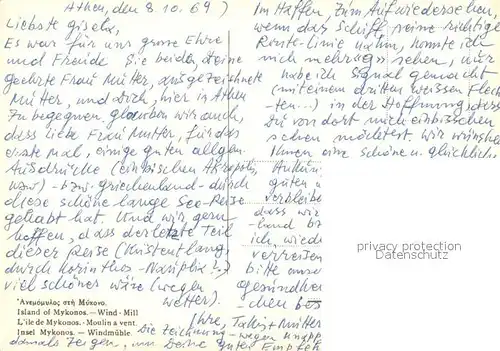 Athen, den 8.10.69)
Liebste Gisela,
Es war für uns grosse Ehre
und Freude Sie beiden, Deine
geehrte Frau Mutter, ausgezeichnete
Mutter, und Dich, hier in Athen
zu begegnen. glauben wir auch,
dass liebe Frau Mutter, für das
erste Mal, einige guten allgem.
Ausdrücke (ein bischen Akropolis,
usw) - bzw. Griechenland - durch
diese schöne lange See-Reise
gehabt hat. Und wir, gern
hoffen, dass der letzte Teil
dieser Reise (Küstentlang,
durch Korinthos - Nauplia!..)
viel schönes wäre (wegen
wetter).
Im Haffen, zum Aufwiedersehen,
wenn das Schiff seine richtige
Route-Linie nahm, konnte ich
mich mehr sehen, nur
habe ich Signal gemacht
(mit einem dritten weissen Flech-
ten...) in der Hoffnung dass
Du von dort mich ein bisschen
sehen möchtest. Wir wünschen
Ihnen eine schöne u. glückliche
guten u
verbleibe
dass wir
land b
ich, wiede
verreisen
bitte
gesundhei
chen bes
Ihre, Takis + Mutter
Die Zeichnung - wegen knapp
damals zeigen, um Deine guter Empfeh
Ἀνεμόμυλος στή Μύκονο.
Island of Mykonos. — Wind - Mill
L'ile de Mykonos. - Moulin a vent.
Insel Mykonos. — Windmühle.
privacy protection